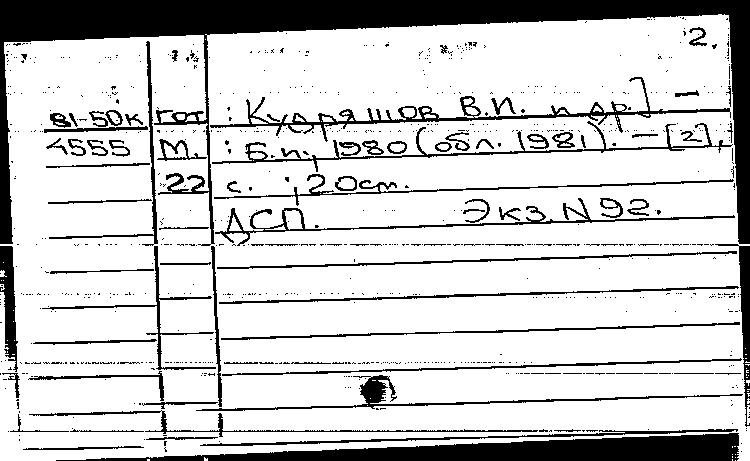 2.
81-50к гот : Кудряшов В.И. и др]. —
4555 М. : Б.и., 1980 (обл. 1981). — [2],
22 с. ; 20 см.
ДСП. Экз. N 92.